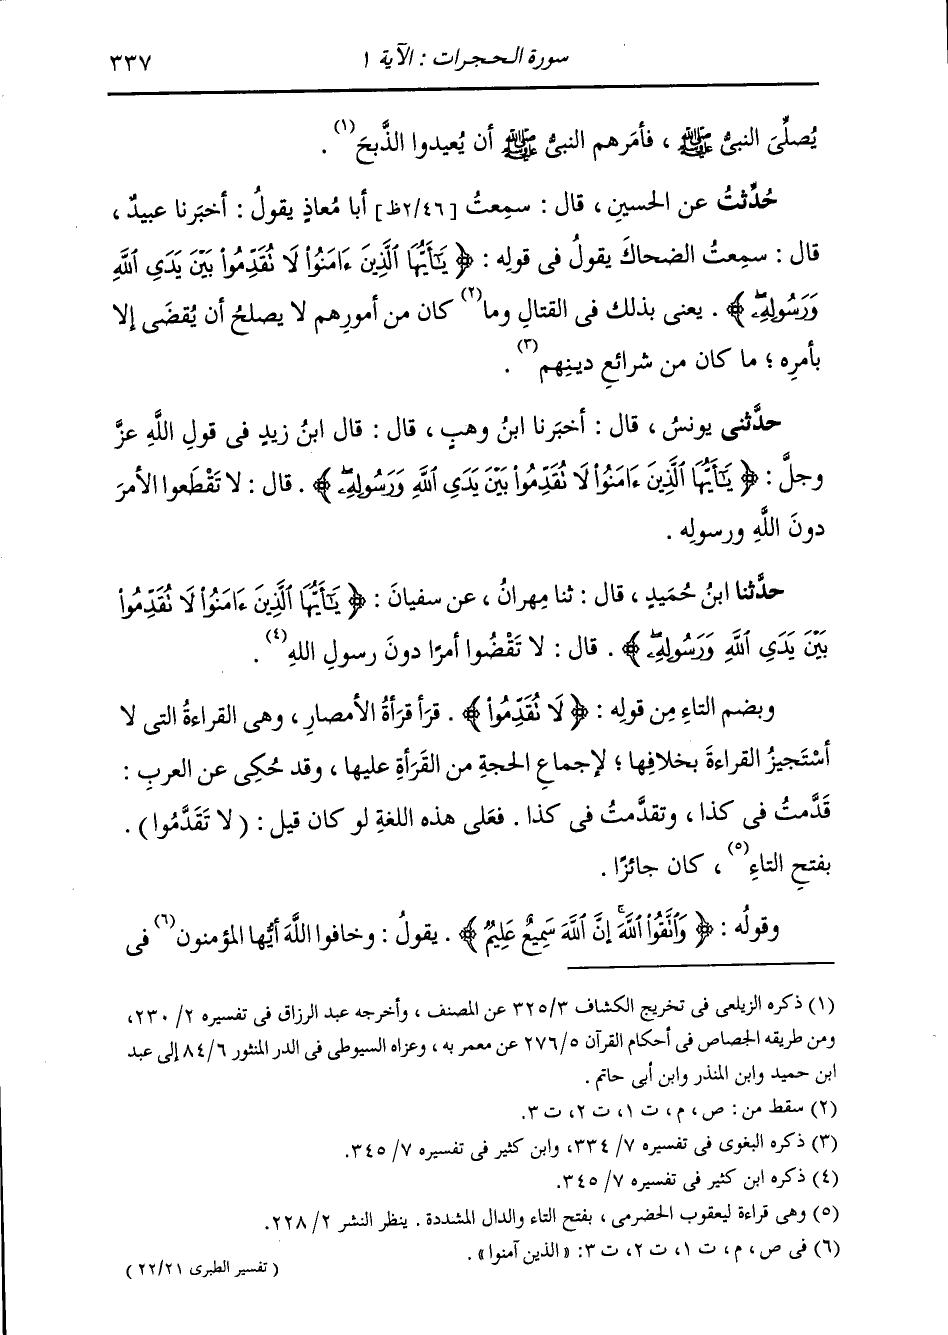 سورة الحجرات : الآية ١
٣٣٧
يُصلِّىَ النبىُّ ﷺ ، فأمَرهم النبىُّ ﷺ أن يُعيدوا الذَّبحَ(١) .
حُدِّثتُ عن الحسينِ ، قال : سمِعتُ [٢/٤٦ظ] أبا مُعاذٍ يقولُ : أخبَرنا عبيدٌ ،
قال : سمِعتُ الضحاكَ يقولُ فى قولِه : ﴿ يَٰٓأَيُّهَا ٱلَّذِينَ ءَامَنُوا۟ لَا نُقَدِّمُوا۟ بَيْنَ يَدَىِ ٱللَّهِ
وَرَسُولِهِۦۖ ﴾ . يعنى بذلك فى القتالِ وما(٢) كان من أمورِهم لا يصلحُ أن يُقضَى إلا
بأمرِه ؛ ما كان من شرائعِ دينِهم(٣) .
حدَّثنى يونسُ ، قال : أخبَرنا ابنُ وهبٍ ، قال : قال ابنُ زيدٍ فى قولِ اللَّهِ عزَّ
وجلَّ : ﴿ يَٰٓأَيُّهَا ٱلَّذِينَ ءَامَنُوا۟ لَا نُقَدِّمُوا۟ بَيْنَ يَدَىِ ٱللَّهِ وَرَسُولِهِۦۖ ﴾ . قال : لا تَقْطَعوا الأمرَ
دونَ اللَّهِ ورسولِه .
حدَّثنا ابنُ حُمَيدٍ ، قال : ثنا مِهرانُ ، عن سفيانَ : ﴿ يَٰٓأَيُّهَا ٱلَّذِينَ ءَامَنُوا۟ لَا نُقَدِّمُوا۟
بَيْنَ يَدَىِ ٱللَّهِ وَرَسُولِهِۦۖ ﴾ . قال : لا تَقْضُوا أمرًا دونَ رسولِ اللهِ(٤) .
وبضم التاءِ مِن قولِه : ﴿ لَا نُقَدِّمُوا۟ ﴾ . قرَأ قرَأةُ الأمصارِ ، وهى القراءةُ التى لا
أسْتَجيزُ القراءةَ بخلافِها ؛ لإجماعِ الحجةِ من القَرَأةِ عليها ، وقد حُكِى عن العربِ :
قَدَّمتُ فى كذا ، وتقدَّمتُ فى كذا . فعَلى هذه اللغةِ لو كان قيل : ( لا تَقَدَّمُوا ) .
بفتحِ التاءِ(٥) ، كان جائزًا .
وقولُه : ﴿ وَٱنَّقُوا۟ ٱللَّهَۚ إِنَّ ٱللَّهَ سَمِيعٌ عَلِيمٌ ﴾ . يقولُ : وخافوا اللَّهَ أيُّها المؤمنون(٦) فى
(١) ذكره الزيلعى فى تخريج الكشاف ٣٢٥/٣ عن المصنف ، وأخرجه عبد الرزاق فى تفسيره ٢/ ٢٣٠،
ومن طريقه الجصاص فى أحكام القرآن ٢٧٦/٥ عن معمر به ، وعزاه السيوطى فى الدر المنثور ٨٤/٦ إلى عبد
ابن حميد وابن المنذر وابن أبى حاتم .
(٢) سقط من : ص، م، ت ١، ت ٢، ت ٣.
(٣) ذكره البغوى فى تفسيره ٧/ ٣٣٤، وابن كثير فى تفسيره ٧/ ٣٤٥.
(٤) ذكره ابن كثير فى تفسيره ٧/ ٣٤٥.
(٥) وهى قراءة ليعقوب الحضرمى ، بفتح التاء والدال المشددة . ينظر النشر ٢/ ٢٢٨.
(٦) فى ص، م، ت ١، ت ٢، ت ٣: «الذين آمنوا» .
( تفسير الطبرى ٢٢/٢١ )